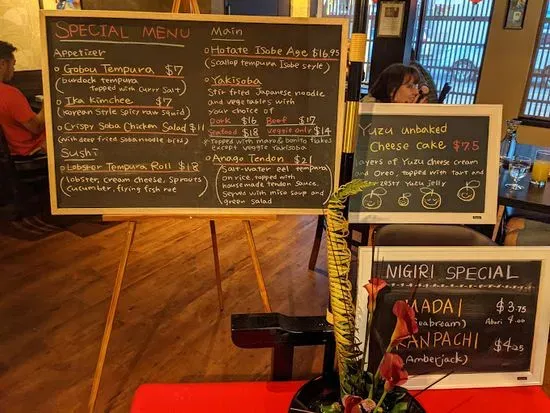 SPECIAL MENU
Appetizer
Gobou Tempura $7
(burdock tempura
topped with curry salt)
Ika Kimchee $7
(Korean style spicy raw squid)
Crispy Soba Chicken Salad $11
(with deep fried soba noodle bits)
Sushi
Lobster Tempura Roll $18
(lobster, cream cheese, sprouts
cucumber, flying fish roe
Main
Hotate Isobe Age $16.95
(Scallop tempura Isobe style)
Yakisoba
Stir fried Japanese noodle
and vegetables with
your choice of
Pork $16 Beef $17
Seafood $18 Veggie only $14
topped with mayo & bonito flakes
except veggie yakisoba
Anago Tendon $21
(Salt-water eel tempura
on rice, topped with
housemade tendon sauce.
Serves with miso soup and
green salad
Yuzu unbaked
Cheese cake $7.5
layers of Yuzu cheese cream
and Oreo, topped with tart and
zesty Yuzu jelly
NIGIRI SPECIAL
MADAI $3.75
(Seabream) Aburi 4.00
KANPACHI $4.25
(Amberjack)